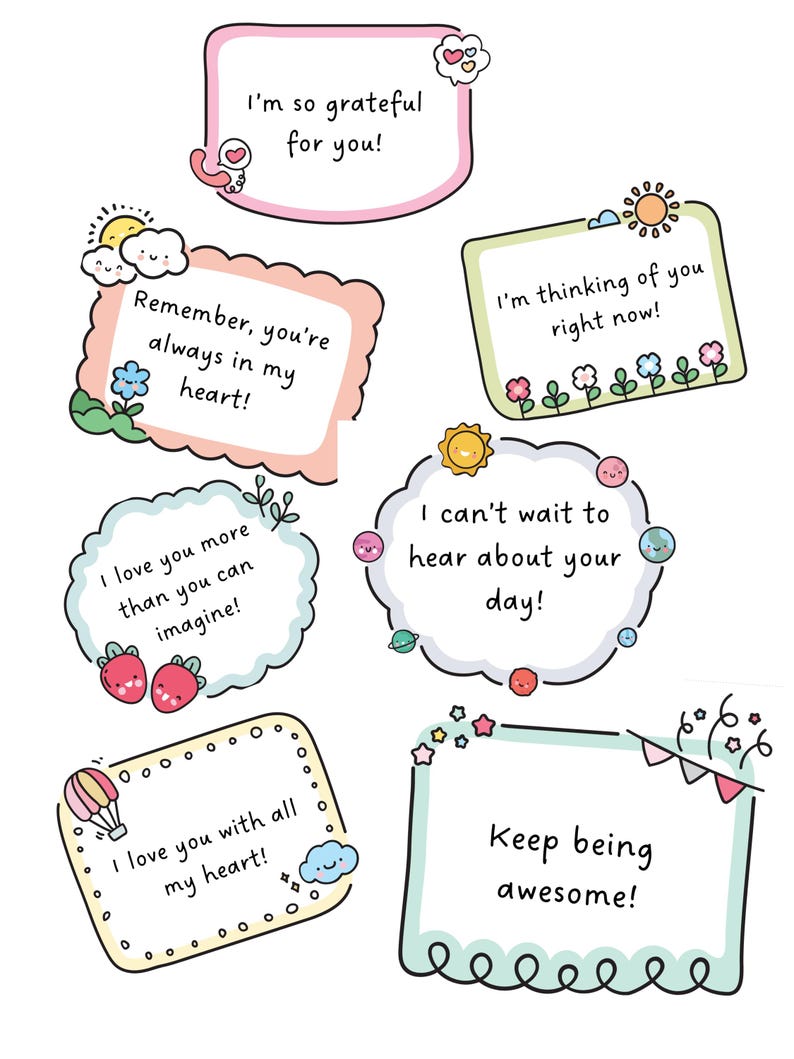 I'm so grateful
for you!
Remember, you're
always in my
heart!
I'm thinking of you
right now!
I love you more
than you can
imagine!
I can't wait to
hear about your
day!
I love you with all
my heart!
Keep being
awesome!